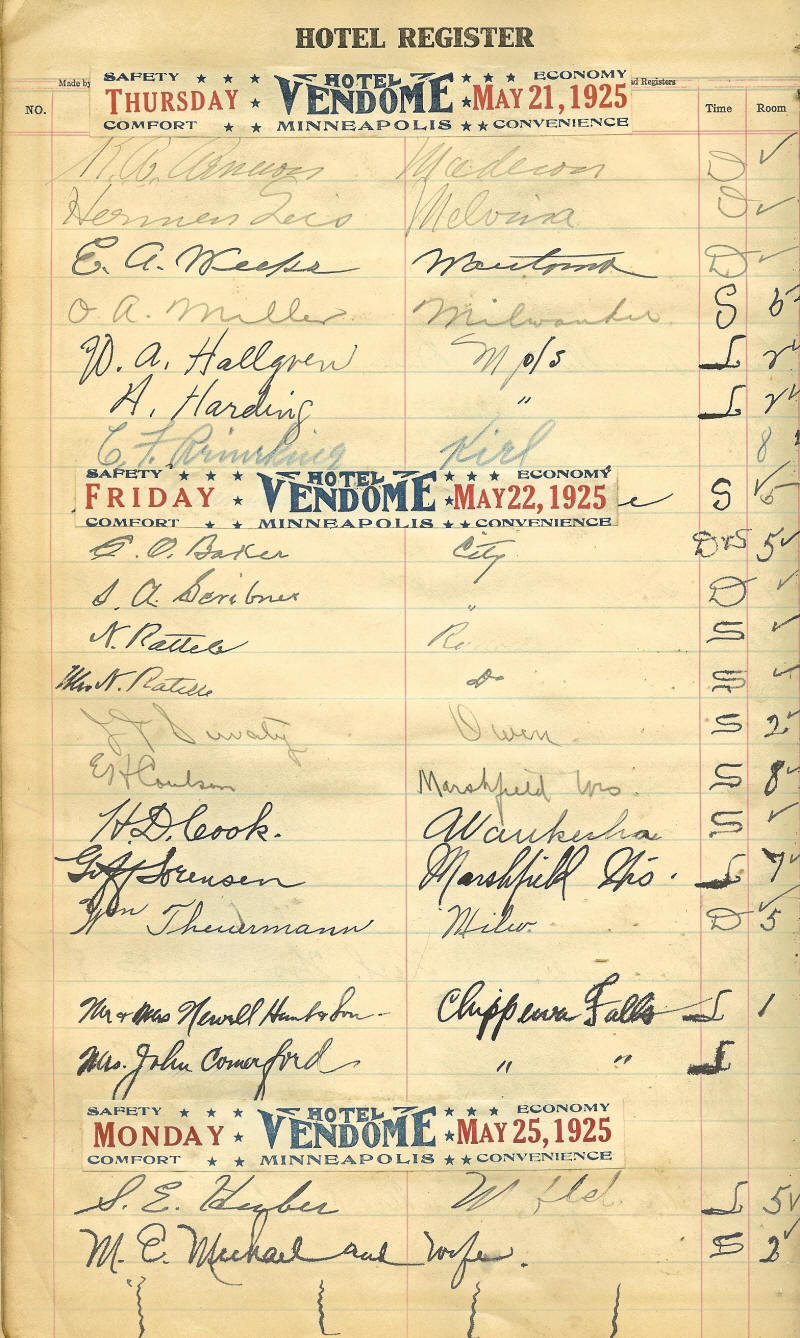 HOTEL REGISTER
Made by
d Registers
SAFETY HOTEL ECONOMY
THURSDAY VENDOME MAY 21, 1925
COMFORT MINNEAPOLIS CONVENIENCE
NO. Time Room
Madison D ✓
Herman Melvina D ✓
E. A. Weeks Wautoma D ✓
O. A. Miller Milwaukee S 5
W. A. Hallgren Mpls L 2
H. Harding " L 2
C. F. Kiel 8
SAFETY HOTEL ECONOMY
FRIDAY VENDOME MAY 22, 1925 S 5
COMFORT MINNEAPOLIS CONVENIENCE
C. O. Baker City D&S 5 ✓
S. A. Scribner " D ✓
N. Rattele S ✓
Mrs N. Ratelle Do S ✓
Owen. S 2 ✓
E H Coulson Marshfield Wis. S 8 ✓
H. D. Cook. Waukesha S ✓
Sorensen Marshfield Wis. L 7 ✓
Wm Theuermann Milw. D 5 ✓
Mr & Mrs Newell Hunt & Son - Chippewa Falls L 1
Mrs. John Comerford " " L
SAFETY HOTEL ECONOMY
MONDAY VENDOME MAY 25, 1925
COMFORT MINNEAPOLIS CONVENIENCE
S. E. M fld. L 5 ✓
M. E. Michael and Wife. S 2 ✓